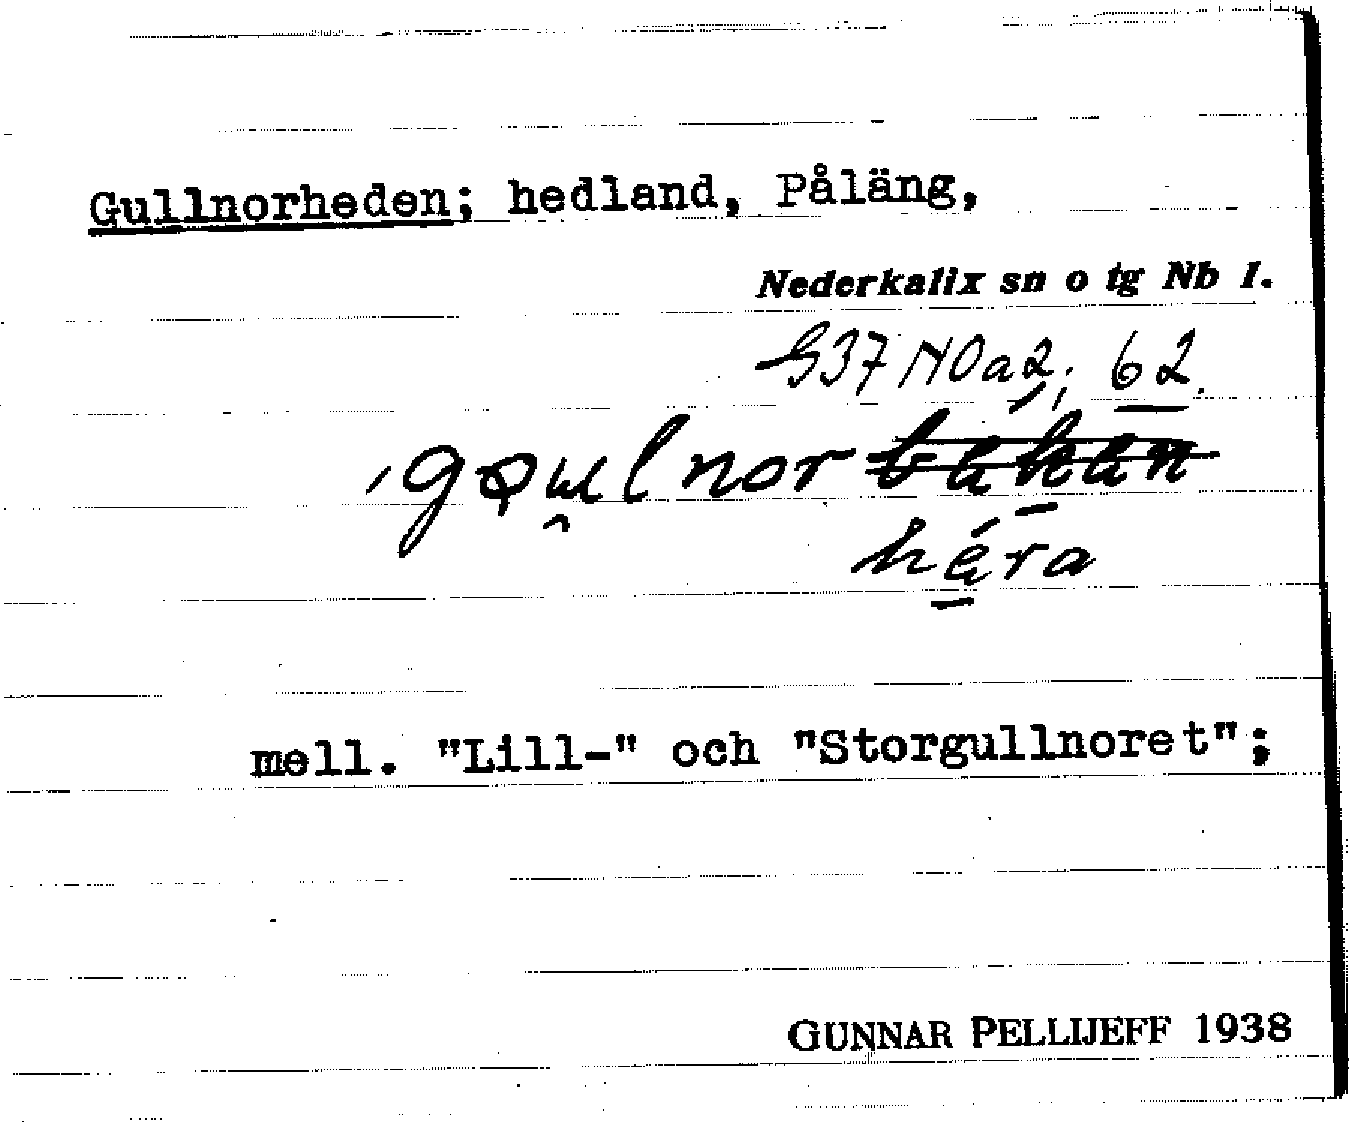 Gullnorheden; hedland, Påläng,
Nederkalix sn o tg Nb 1.
G37 NOa2; 62.
hára
mell. "Lill-" och "Storgullnoret";
GUNNAR PELLIJEFF 1938